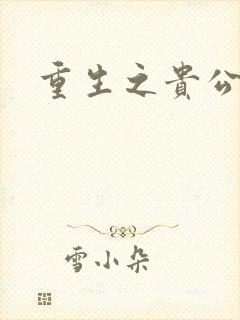 重生之貴公
雪小朵